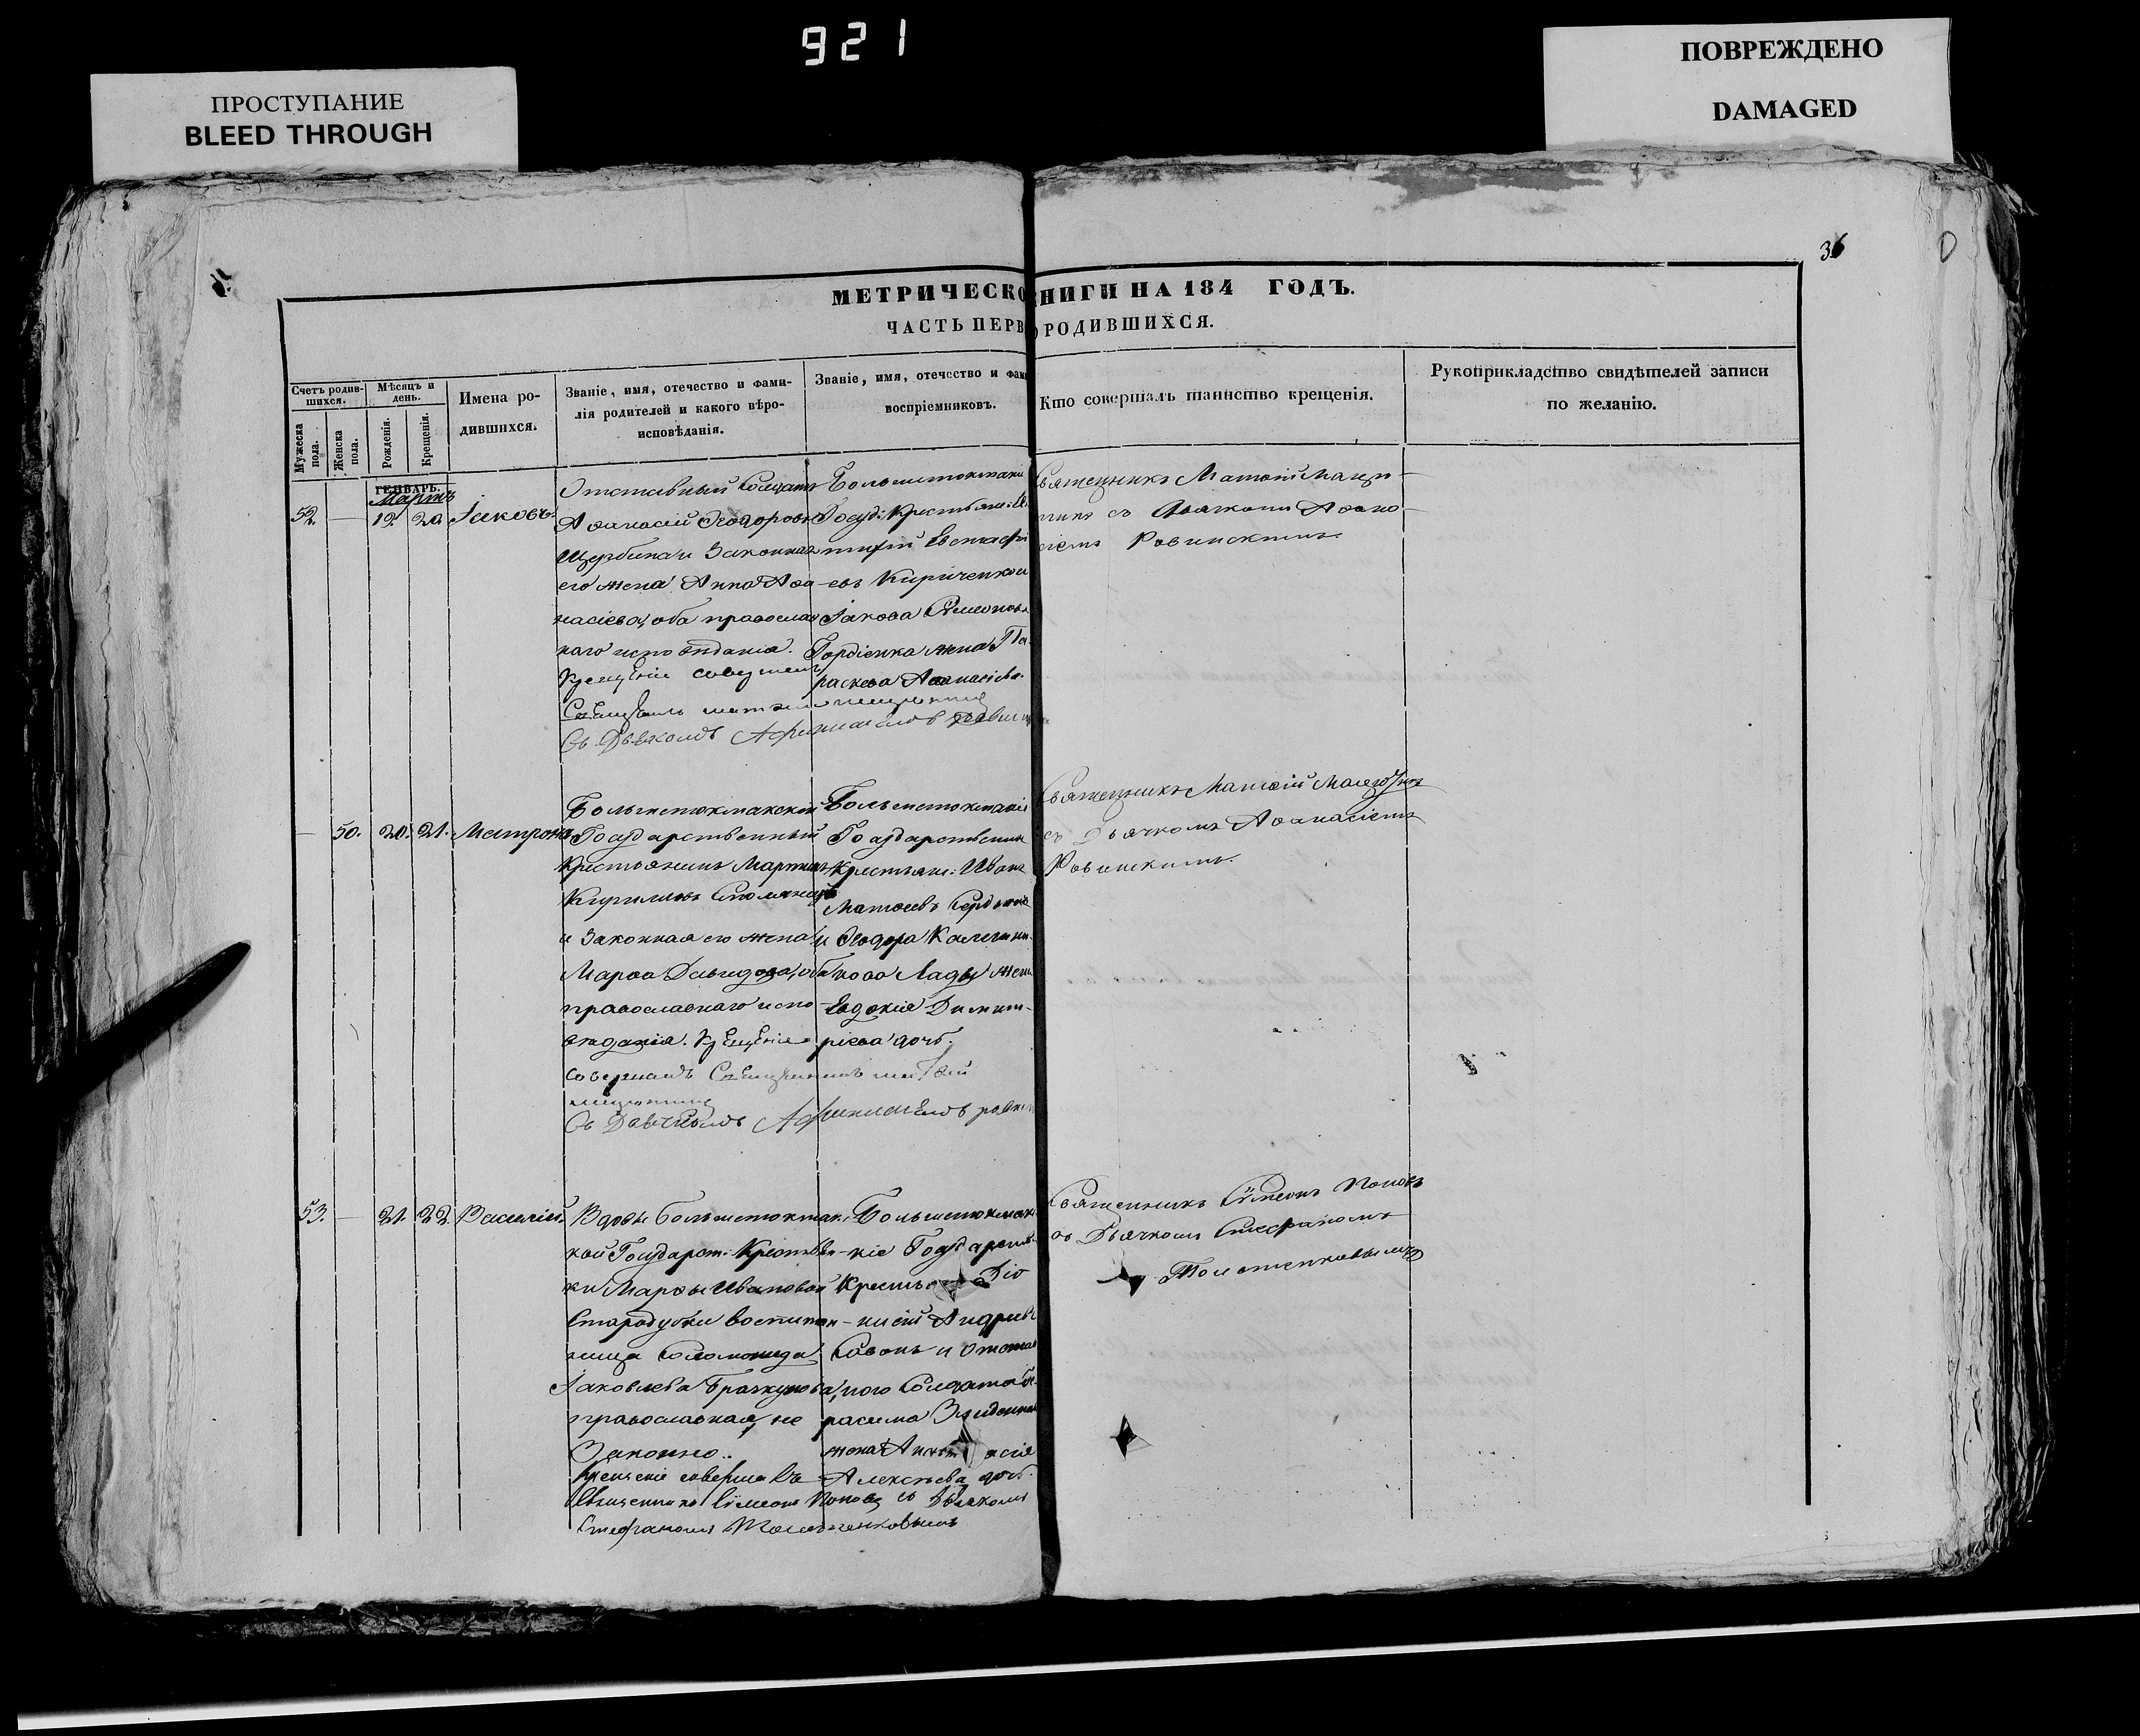 921
ПРОСТУПАНИЕ
BLEED THROUGH
ПОВРЕЖДЕНО
DAMAGED
36
МЕТРИЧЕСКО НИГИ НА 184 ГОДЪ.
ЧАСТЬ ПЕРВ РОДИВШИХСЯ.
Счетъ родив-
шихся.
Мужеска
пола.
Женска
пола.
Мѣсяцъ и
день.
Рожденія.
Крещенія.
Имена ро-
дившихся.
Званіе, имя, отечество и фами-
лія родителей и какого вѣро-
исповѣданія.
Званіе, имя, отечество и фам
воспріемниковъ.
Кто совершалъ таинство крещенія.
Рукоприкладство свидѣтелей записи
по желанію.
ГЕНВАРЬ.
Мартъ
52. — 12. 20 Іаковъ.
Отставный Солдатъ
Аѳанасій Ѳеодоровъ
Щербина и Законная
его жена Анна Аѳа-
насіева, оба православ
наго исповѣданія.
Крещеніе
Съ Дьякомъ
Большетокмаки
Госуд: Крестьяне:
Евстафі
евъ Кириченко и
Іакова Симеонова
Гордіенка жена Па-
раскева Аѳанасіева.
Священникъ Матѳій Мацю-
с Дьячкомъ Аѳана-
сіемъ Ровинскимъ.
— 50. 20. 21. Матрона
Большетокмакской
Государственный
Крестьянинъ Мартинъ
Кириловъ
и Законная его жена
Марѳа Давидова, оба
православнаго испо-
вѣданія. Крещеніе
совершалъ Священникъ
Съ Дьячкомъ
Большетокмакіе
Государственни
Крестьяне: Иванъ
Матѳеевъ Сердюкъ
и Ѳеодора Калини-
кова Лады жена
Евдокія Димит-
ріева дочь.
Священникъ Матѳій
съ Дьячкомъ Аѳанасіемъ
Ровинскимъ.
53. — 21. 22. Василій.
Вдовы большетокмак:
кой Государст: Крестьян-
ки Марѳы Ивановой
Стародубки воспитан-
ница Соломонида
Іаковлева
православная, не
Законно.
Крещеніе совершалъ
Священникъ Симеонъ Поповъ съ Дьякомъ
Стефаномъ Толстенковымъ
Большетокмак
кіе Государств
Крестьяне Діо
нисій Андреевъ
Савонъ и Отстав
ного Солдата Ге-
расима
жена Анастасія
Алексѣева дочь.
Священникъ Симеонъ Поповъ
съ Дьячкомъ Стефаномъ
Толстенковымъ